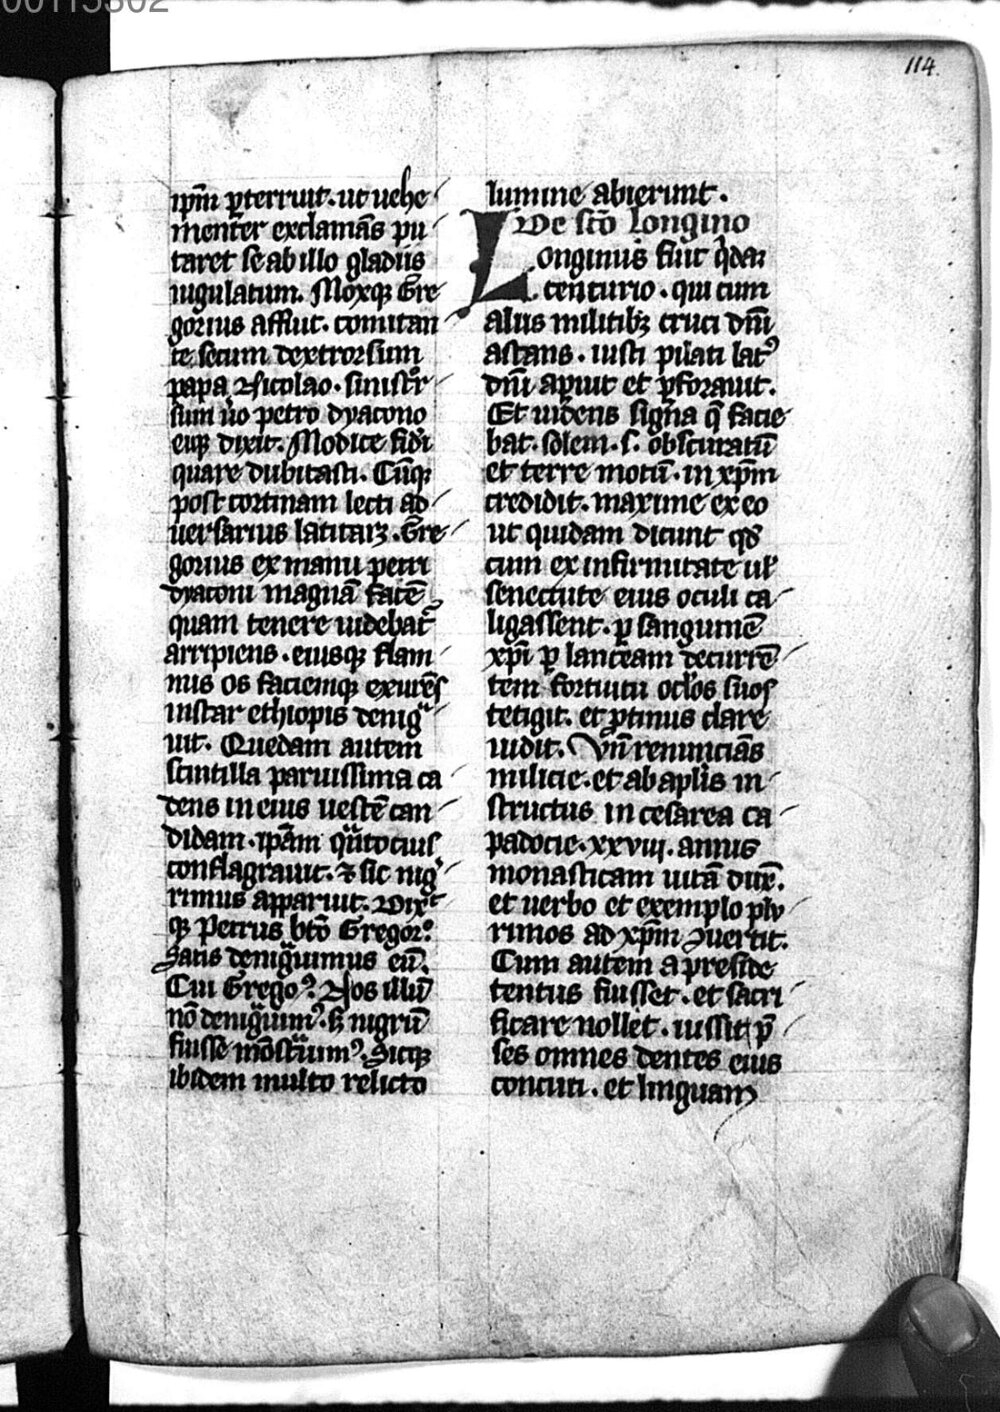 00115302
114.
ip̄m ꝑterruit. ut uehe
ment̄er exclamās pu
taret se ab illo gladiis
iugulatum. Moxqꝫ Gre
gorius affuit. comitan
te secum dextrorsum
papa Nicolao. sinistr̄
sum u̓o petro dyacono
eiqꝫ dixit. Modice fid̓i
quare dubitasti. Cūqꝫ
post cortinam lecti ad
uersarius latitarꝫ. Gre
gorius ex manu petri
dyaconi magnā facē
quam tenere uidebat᷑
arripiens. eiusqꝫ flam
mis os faciemqꝫ exurēs
instar ethiopis denigᵃ
uit. Quedam autem
scintilla paruissima ca
dens in eius uestē can
didam. ip̄am qͣ̄tocius
conflagrauit. ⁊ sic nigͬ
rimus apparuit. Dixᵗ
qꝫ Petrus bt̄o Gregorꝰ.
Satis denigͣuimus eū.
Cui Gregoꝰ. Nos illū
nō denigͣuimꝰ. sꝫ nigrū
fuisse mōstͣuimꝰ. Sicqꝫ
ibidem multo relicto
lumine abierunt.
De sc̄o Longino
Longinus fuit q̓dā
centurio. qui cum
aliis militibꝫ cruci dn̄i
astans. iussu pilati latꝰ
dn̄i aꝑuit et ꝑforauit.
Et uidens signa q̄ facie
bat. solem. s. obscuratū
et terre motū. in xp̄m
credidit. maxime ex eo
ut quidam dicunt qd̓
cum ex infirmitate ul̓
senectute eius oculi ca
ligassent. ꝑ sanguinē
xp̄i ꝑ lanceam decurrē
tem fortuitu ocl̓os suos
tetigit. et ꝓtinus clare
uidit. Vn̄ renuncians
milicie. et ab apl̓is in
structus in cesarea ca
padocie. xxviii. annis
monasticam uitā dux̄.
et uerbo et exemplo plu
rimos ad xp̄m ꝯuertit.
Cum autem a preside
tentus fuisset. et sacri
ficare nollet. iussit p̄
ses omnes dentes eius
concuti. et linguam